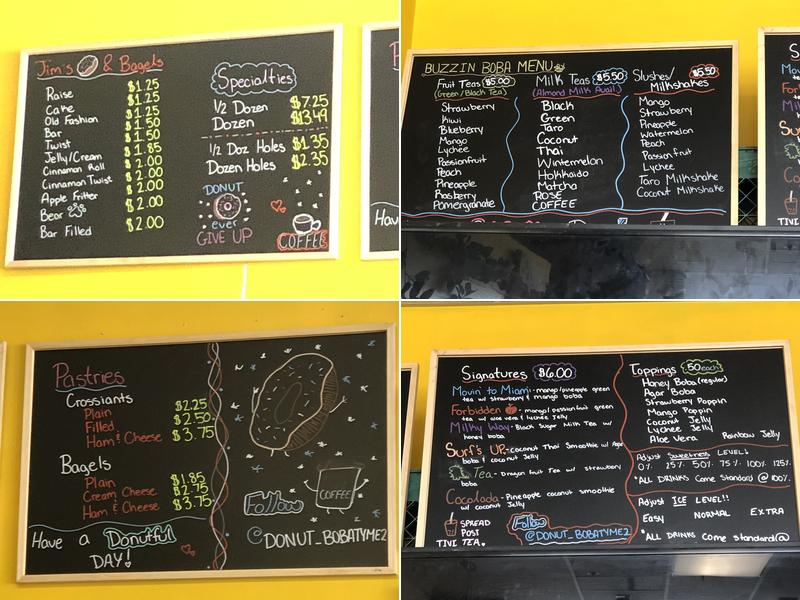 Jim's & Bagels
Raise $1.25
Cake $1.25
Old Fashion $1.25
Bar $1.50
Twist $1.50
Jelly/Cream $1.85
Cinnamon Roll $2.00
Cinnamon Twist $2.00
Apple Fritter $2.00
Bear
Bar Filled $2.00
Specialties
1/2 Dozen $7.25
Dozen $13.49
1/2 Doz Holes $1.35
Dozen Holes $2.35
DONUT
ever
GIVE UP
COFFEE
Ha
BUZZIN BOBA MENU
Fruit Teas $5.00
(Green/Black Tea)
Strawberry
Kiwi
Blueberry
Mango
Lychee
Passionfruit
Peach
Pineapple
Rasberry
Pomegranate
Milk Teas $5.50
(Almond Milk Avail)
Black
Green
Taro
Coconut
Thai
Wintermelon
Hokkaido
Matcha
ROSE
COFFEE
Slushes/ $5.50
Milkshakes
Mango
Strawberry
Pineapple
Watermelon
Peach
Passionfruit
Lychee
Taro Milkshake
Coconut Milkshake
Pastries
Crossiants
Plain $2.25
Filled $2.50
Ham & Cheese $3.75
Bagels
Plain $1.85
Cream Cheese $2.75
Ham & Cheese $3.75
Have a Donutful
DAY!
COFFEE
Follow
@DONUT_BOBATYME2
Signatures $6.00
Movin' to Miami - mango/pineapple green
tea w/ strawberry & mango boba
Forbidden - mango/passionfruit green
tea w/ aloe vera & lychee Jelly
Milky Way - Black Sugar Milk Tea w/
honey boba
Surf's UP - coconut Thai Smoothie w/ Agar
boba & coconut Jelly
Tea - Dragon fruit Tea w/ strawberry
boba
Cocolada - Pineapple coconut smoothie
w/ coconut Jelly
SPREAD
POST
TIVI TEA.
Follow
@DONUT_BOBATYME2
Toppings .50 each
Honey Boba (regular)
Agar Boba
Strawberry Poppin
Mango Poppin
Coconut Jelly
Lychee Jelly
Aloe Vera Rainbow Jelly
Adjust Sweetness LEVEL!
0% 25% 50% 75% 100% 125%
*ALL DRINKS Come Standard @ 100%.
Adjust ICE LEVEL!!
Easy NORMAL EXTRA
*ALL DRINKS Come standard@